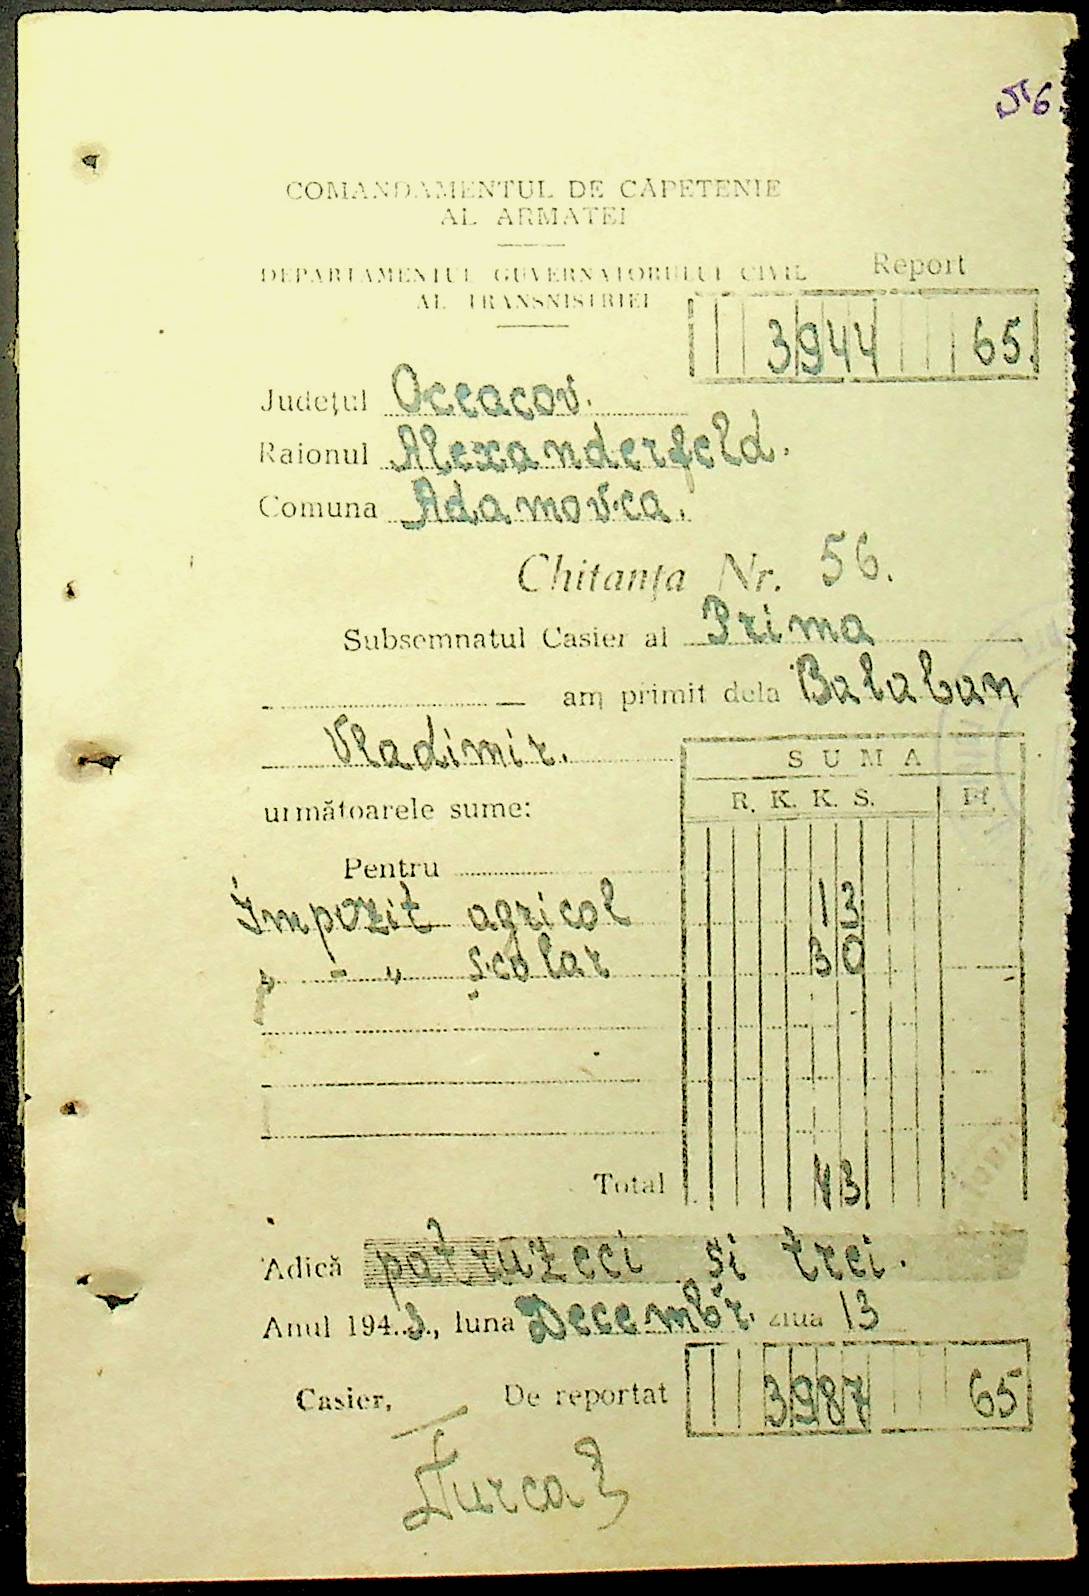 56
COMANDAMENTUL DE CĂPETENIE
AL ARMATEI
DEPARTAMENTUL GUVERNATORULUI CIVIL
AL TRANSNISTRIEI
Report
3944 65.
Județul Oceacov.
Raionul Alexanderfeld.
Comuna Adamovca.
Chitanța Nr. 56.
Subsemnatul Casier al Prima
am primit dela Balaban
Vladimir.
SUMA
R. K. K. S. Pf.
următoarele sume:
Pentru
Impozit agricol 13
" - " școlar 30
Total 43
Adică patruzeci și trei.
Anul 1943., luna Decembr. ziua 13
Casier, De reportat 3987 65